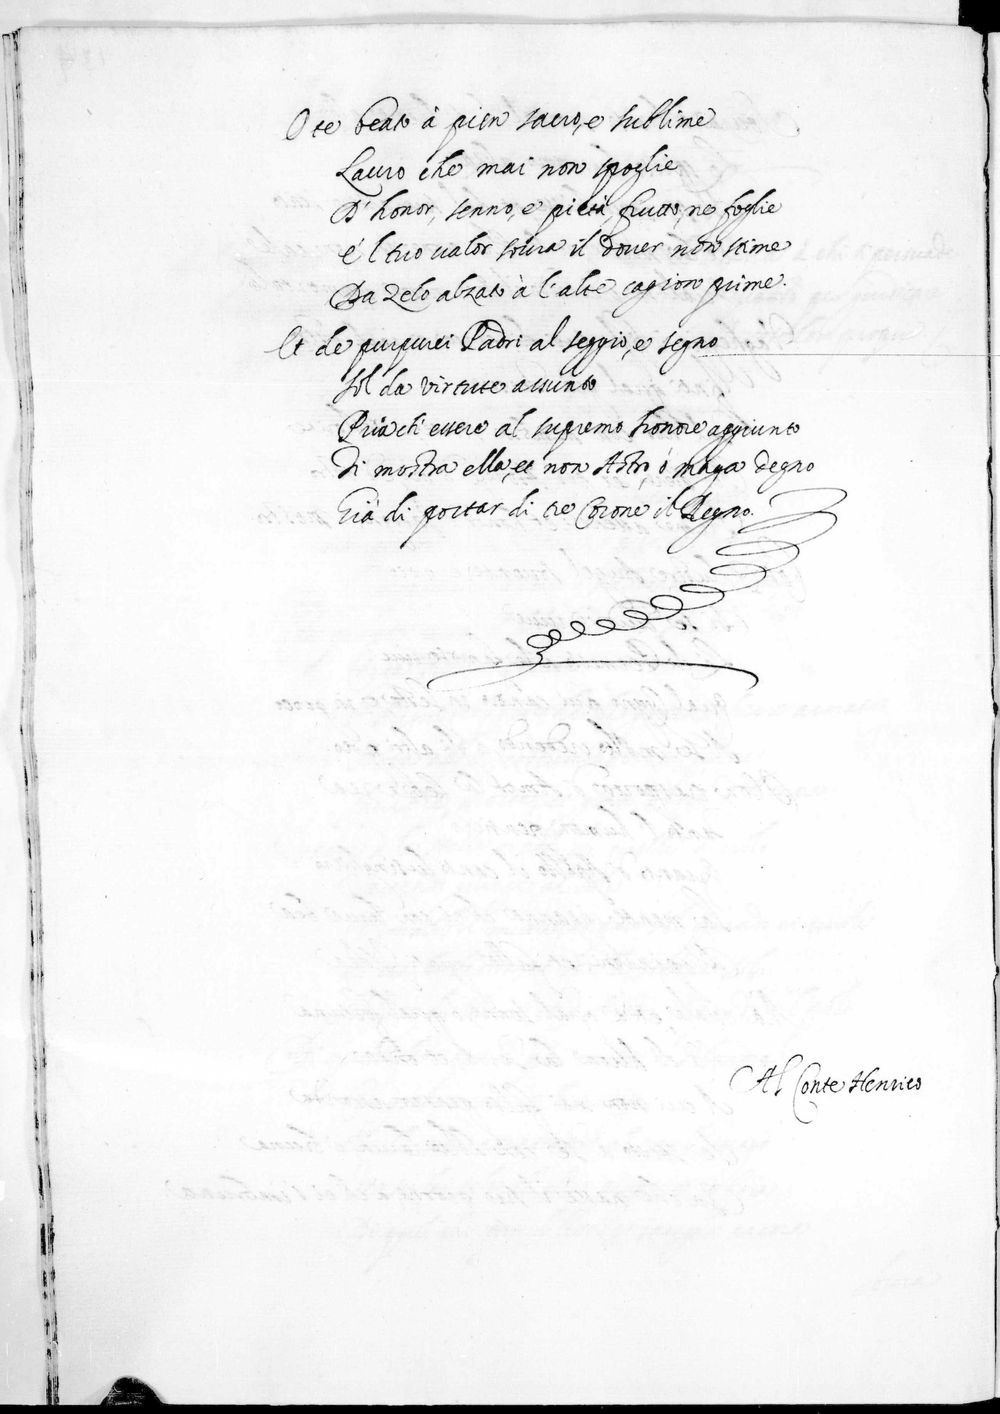 O te beato à pien sacro, e sublime
Lauro che mai non spoglie
D'honor, senno, e pietà, frutto, ne foglie
E'l tuo valor soura il douer non stime
Da Zelo alzato à l'alte cagion prime.
Et de purpurei Padri al seggio, e segno
Sol da virtute assunto
Pria ch'essere al supremo honore aggiunto
Di mostra ella, et non Astro, ò maga degno
Già di portar di tre Corone il Regno.
Al Conte Henrico